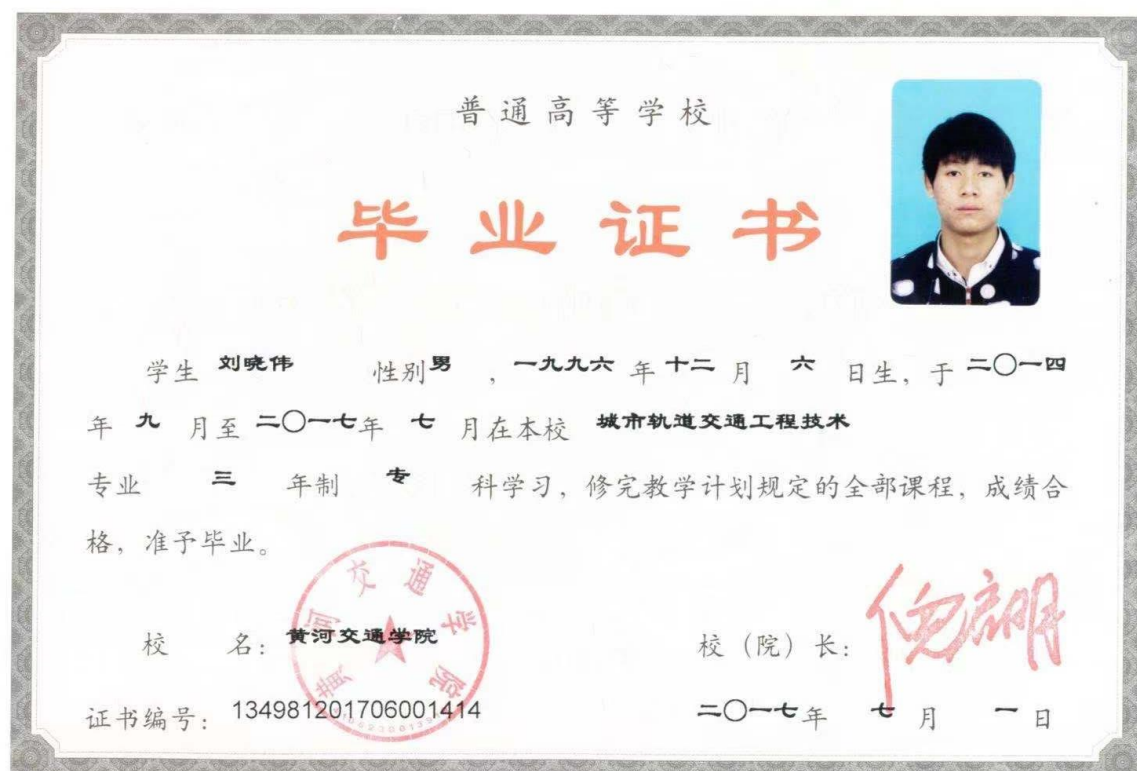 普通高等学校
毕业证书
学生 刘晓伟 性别 男 , 一九九六 年 十二 月 六 日生, 于 二〇一四
年 九 月至 二〇一七年 七 月在本校 城市轨道交通工程技术
专业 三 年制 专 科学习, 修完教学计划规定的全部课程, 成绩合
格, 准予毕业。
黄河交通学院
校 名: 黄河交通学院
校 (院) 长:
证书编号: 134981201706001414
二〇一七年 七 月 一 日